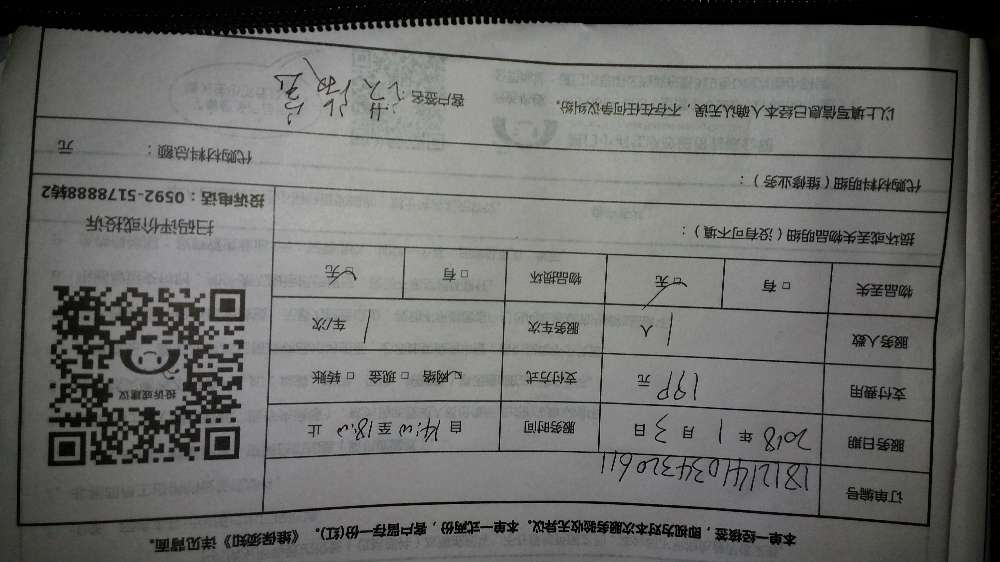 本单一经接签，即视为对本次服务验收无异议。本单一式两份，客户留存一份(红)。《维保须知》详见背面。
订单编号 181214103432061 1
服务日期 2018 年 1 月 3 日 服务时间 自 14:00 至 18:00 止
支付费用 199 元 支付方式 ☑ 网络 □ 现金 □ 转账
服务人数 1 人 服务车次 1 车/次
物品丢失 □ 有 ☑ 无 物品损坏 □ 有 ☑ 无
投诉或建议
扫码评价或投诉
投诉电话：0592-5178888转2
损坏或丢失物品明细（没有可不填）：
代购材料明细（维修业务）：
代购材料总额： 元
以上填写信息已经本人确认无误，不存在任何争议纠纷。
客户签名：